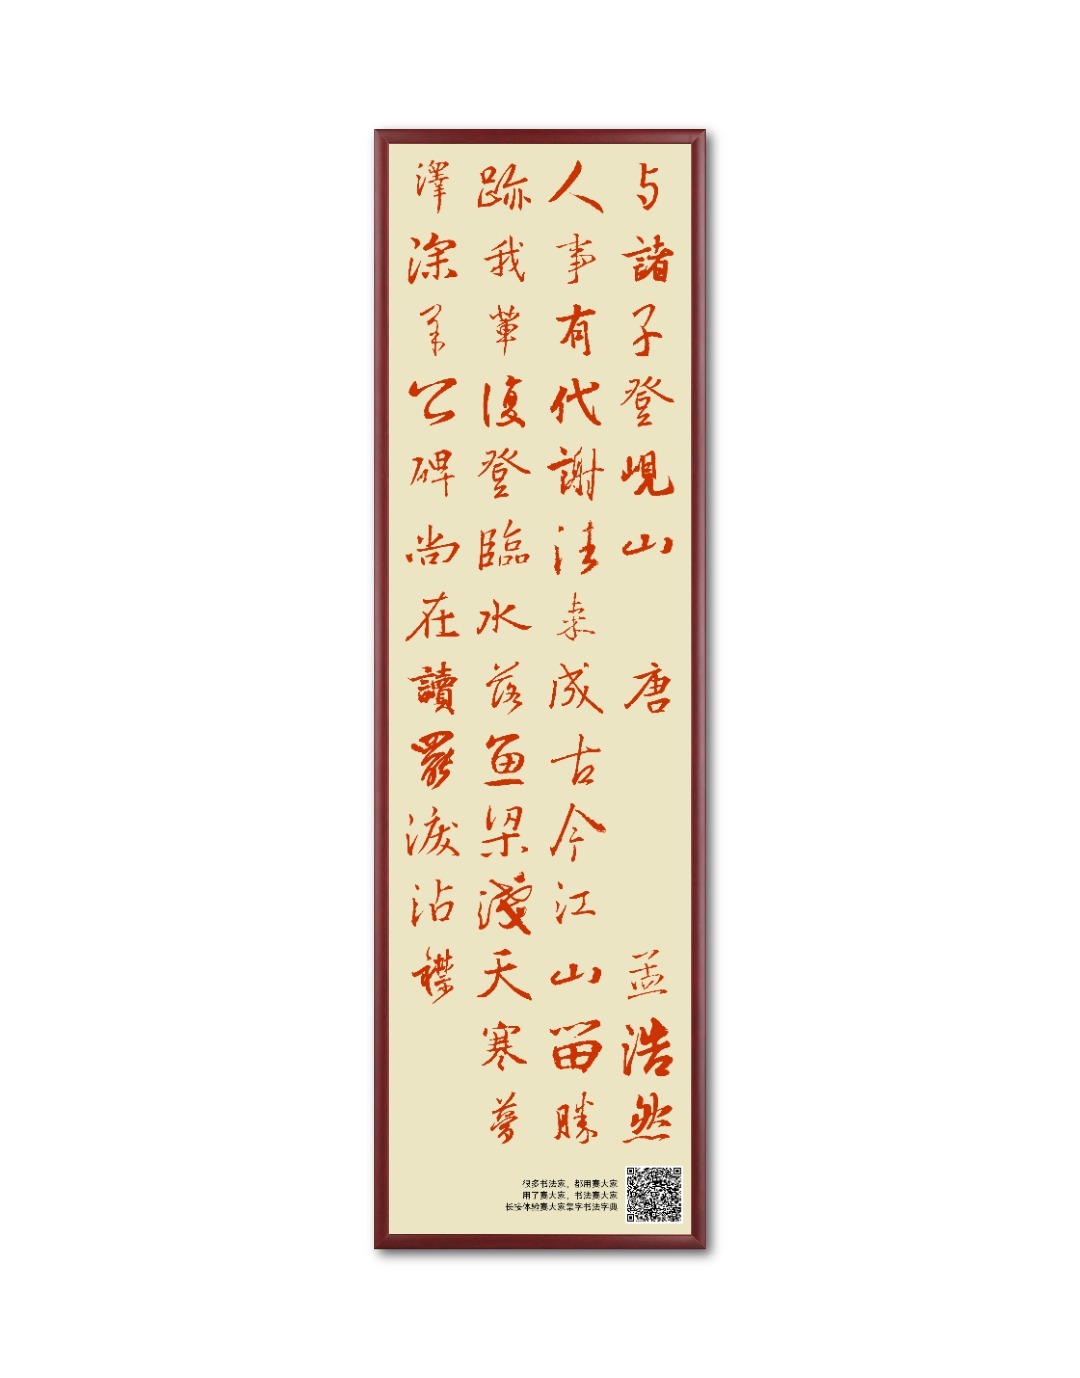 与諸子登峴山 唐 孟浩然
人事有代謝往来成古今江山留勝
跡我輩復登臨水落魚梁淺天寒夢
澤深羊公碑尚在讀罷淚沾襟
很多书法家，都用赛大家
用了赛大家，书法赛大家
长按体验赛大家集字书法字典